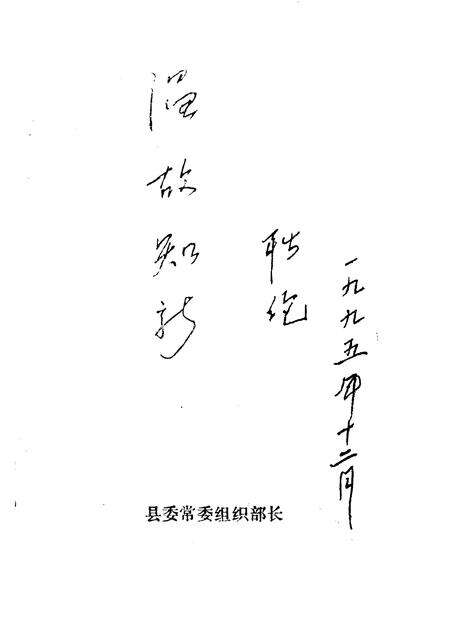 温故知新
一九九五年十二月
县委常委组织部长